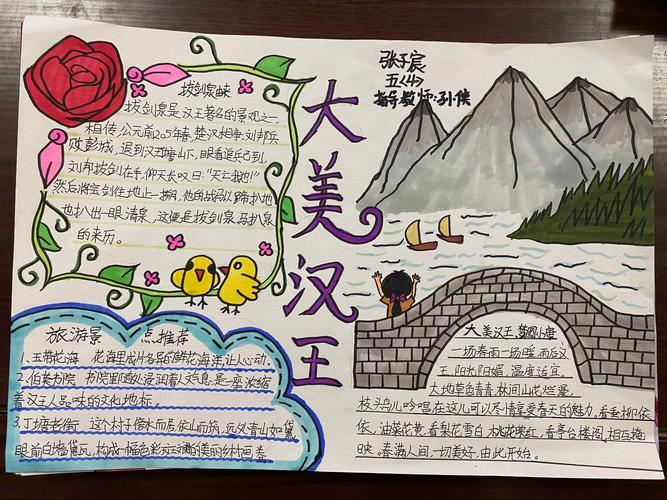 张子宸
五(4)
指导教师:孙侠
大美汉王
拔剑泉
拔剑泉是汉王著名的景观之一
相传,公元前205年春,楚汉相争,刘邦兵
败彭城,退到汉王塘山下,眼看追兵已到,
刘邦拔剑在手,仰天长叹曰:“天亡我也!”
然后将宝剑往地上一掷,他的战马以蹄扒地
也扒出一眼清泉,这便是拔剑泉马扒泉
的来历。
旅游景点推荐
1、玉带花海 花海里成片各异的鲜花海洋,让人心动。
2、伯英书院 书院里随处浸润着人文气息,是一座浓缩
着汉王人品味的文化地标。
3、丁塘老街 这个村子傍水而居依山而筑,远处青山如黛
眼前白墙黛瓦,构成一幅色彩斑斓的美丽乡村画卷
大美汉王,梦圆小康
一场春雨一场暖,雨后汉
王,阳光明媚,温度适宜。
大地草色青青,林间山花烂漫,
枝头鸟儿吟唱,在这儿可以尽情享受春天的魅力,看垂柳依
依,油菜花黄,看梨花雪白,桃花嫣红,看亭台楼阁,相互掩
映。春满人间,一切美好,由此开始。